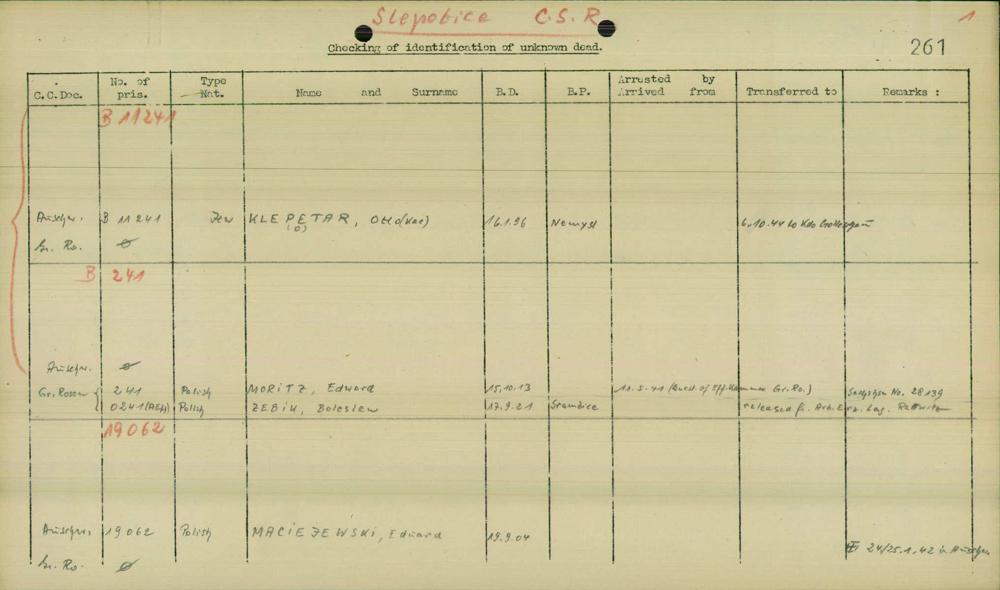 Slepotice C.S.R
1
Checking of identification of unknown dead.
261
C.C.Doc. No. of pris. Type Nat. Name and Surname B.D. B.P. Arrested by Arrived from Transferred to Remarks :
B 11241
Auschw. B 11241 Jew KLEPETAR, Otto 16.1.96 6.10.44 to Kdo
(O)
Gr. Ro. ø
B 241
Auschw. ø
Gr. Rosen { 241 Polish MORITZ, Edward 15.10.13 Gr. Ro.) No. 28139
0241 (AEH) Polish ZEBIK, Boleslew 17.9.21 released f.
19062
Auschw. 19062 Polish MACIEJEWSKI, Eduard 19.9.04 24/25.1.42 in Auschw.
Gr. Ro. ø